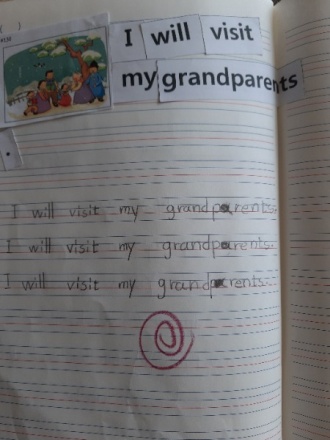 I will visit
my grandparents
I will visit my grandparents.
I will visit my grandparents.
I will visit my grandparents.